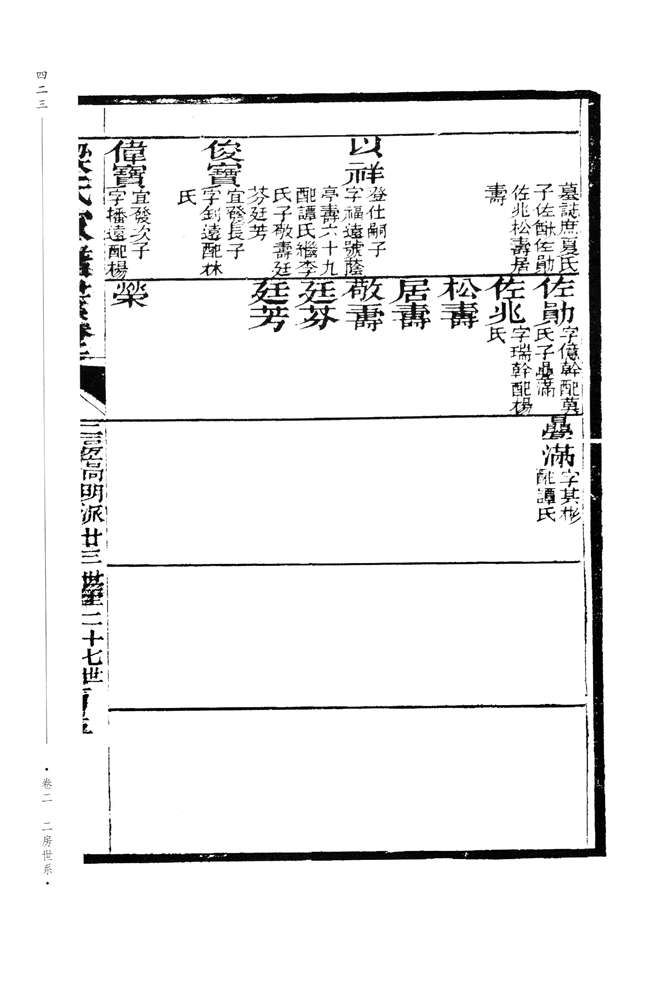 墓誌庶夏氏
子佐猷佐勛
佐兆松壽居
壽
以祥
登仕嗣子
字福遠號蔭
亭壽六十九
配譚氏繼李
氏子敬壽廷
芬廷芳
俊寶
宜發長子
字釗遠配林
氏
偉寶
宜發次子
字播遠配楊
佐勛
字億幹配莫
氏子勗滿
佐兆
字瑞幹配楊
氏
松壽
居壽
敬壽
廷芬
廷芳
榮
滿
字其彬
配譚氏
高明派廿三世至二十七世
四二三
·卷二 二房世系·